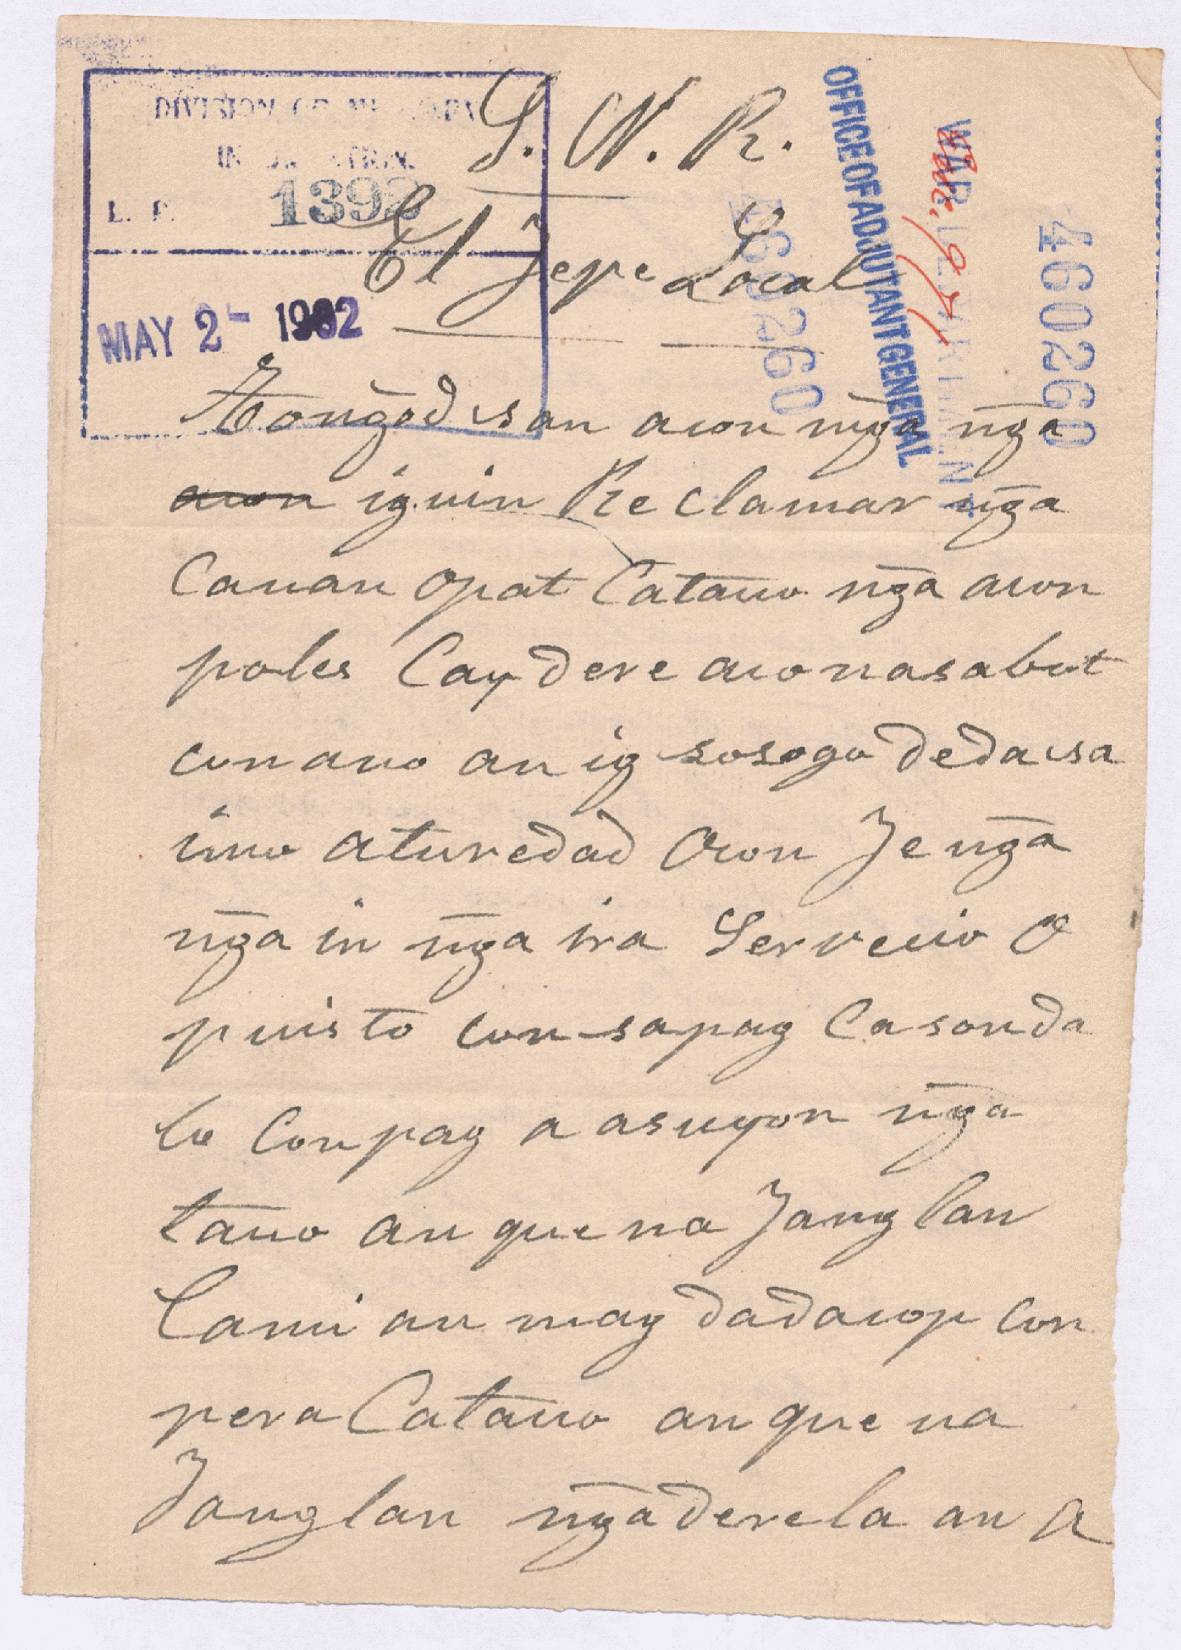 DIVISION OF MILITARY
INFORMATION.
L. R. 1393
MAY 2- 1902
OFFICE OF ADJUTANT GENERAL
WAR DEPARTMENT
460260
460260
S. N. R.
El Jepe Local
Tongod san acon mg̃a ng̃a
acon iguin Reclamar ng̃a
Canan Opat Catauo ng̃a acon
poles Cay dere aco nasabut
cun ano an ig sosogo deda sa
imo aturedad Acon Je ng̃a
ng̃a in ng̃a ira Servecio O
puisto cun sapag Casonda
lo Con pag a asuyon ng̃a
tauo an que na Janglan
Cami an mag dadacop con
pera Catauo an que na
Janglan ng̃a dere la an a